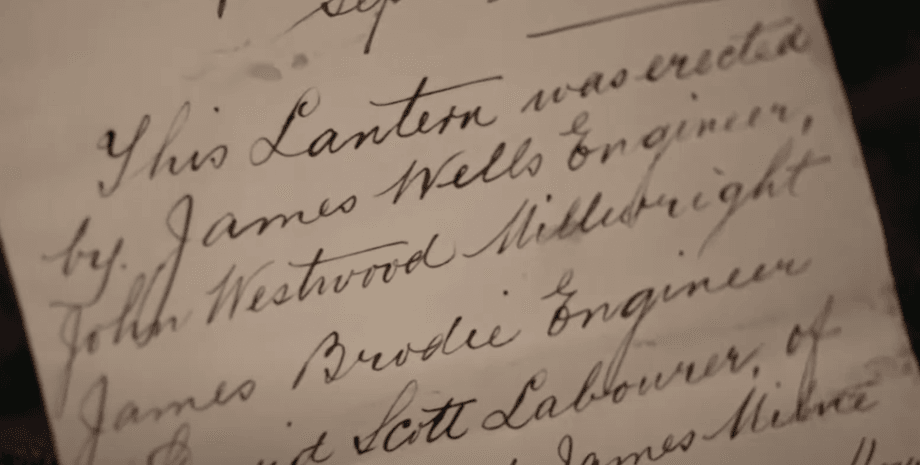 Sep
This Lantern was erected
by. James Wells Engineer,
John Westwood Millwright
James Brodie Engineer
Scott Labourer, of
James Milne